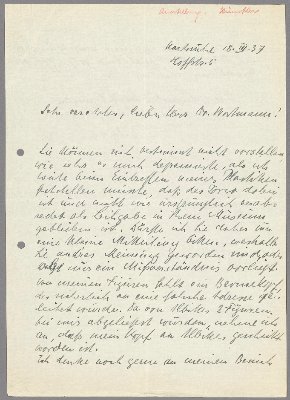 Karlsruhe 18.IV.37
Hoffstr. 5
Sehr verehrter, lieber Herr Dr. Wortmann!
Sie können sich bestimmt nicht vorstellen
wie sehr es mich deprimierte, als ich
heute beim Eintreffen meiner Plastiken
feststellen musste, daß der Torso dabei
ist und nicht wie ursprünglich verab-
redet als Leihgabe in Ihrem Museum
geblieben ist. Dürfte ich Sie daher um
eine kleine Mitteilung bitten, weshalb
Sie anderer Meinung geworden sind, oder
ob nur ein Missverständnis vorliegt.
Von meinen Figuren fehlt ein Bronzekopf,
der sicherlich an eine falsche Adresse ge-
leitet wurde. Da von 2 Figuren
bei mir abgeliefert wurden, nehme ich
an, daß mein Kopf an geschickt
worden ist.
Ich denke noch gerne an meinen Besuch